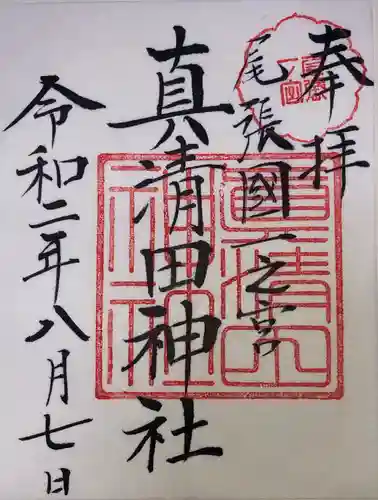 奉拝
尾張國一之宮
真清田神社
令和二年八月七日